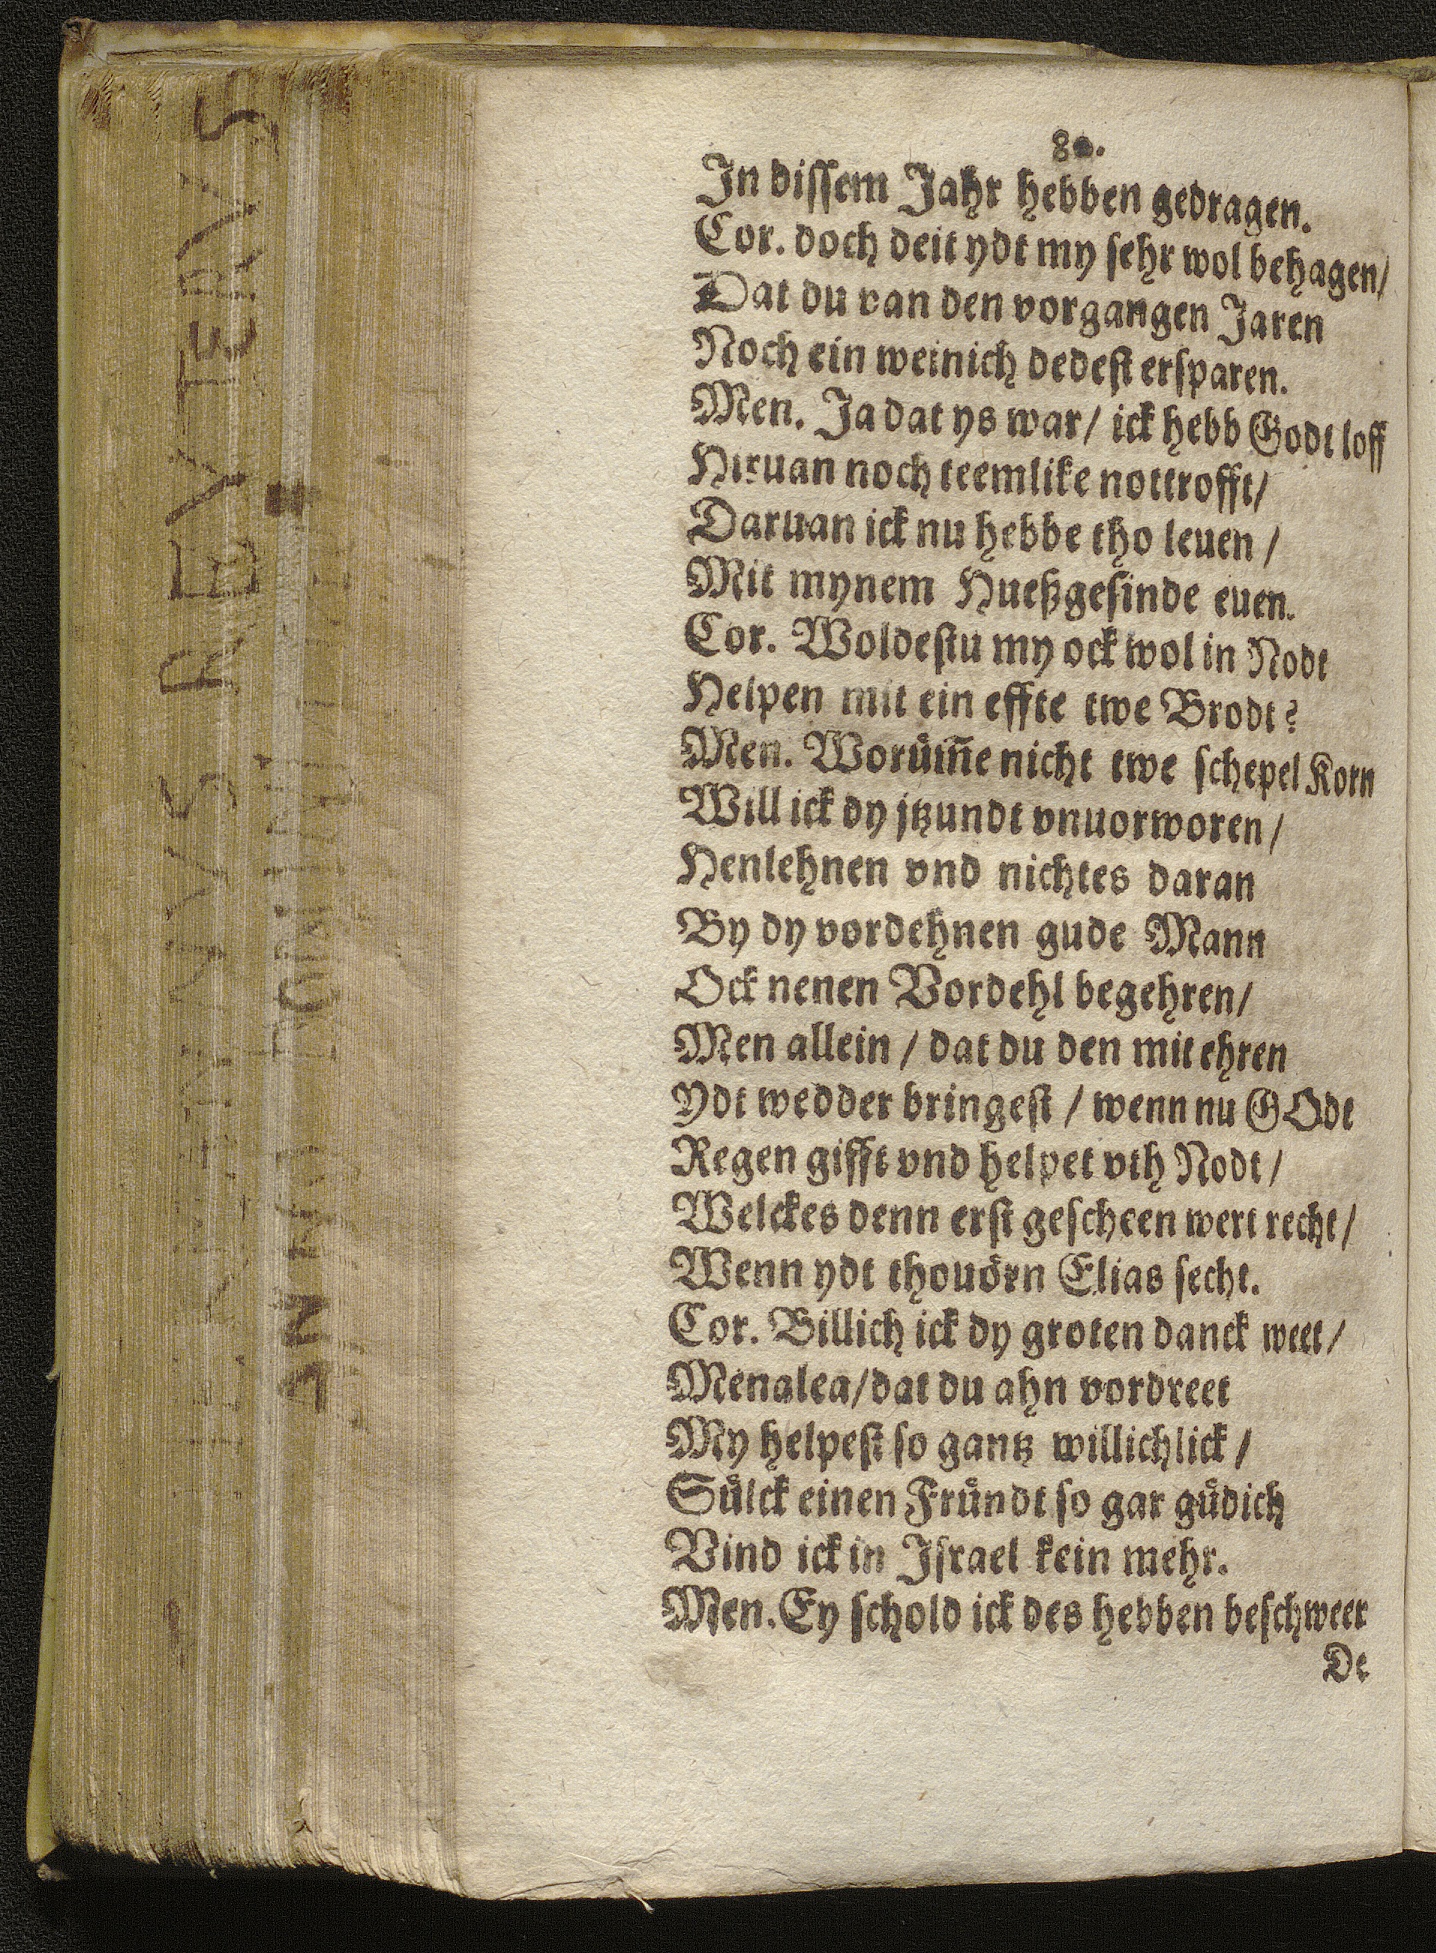 80.
In diſſem Jahr hebben gedragen.
Cor. doch deit ydt my ſehr wol behagen/
Dat du van den vorgangen Jaren
Noch ein weinich dedeſt erſparen.
Men. Ja dat ys war/ ick hebb Godt loff
Hiruan noch teemlike nottrofft/
Daruan ick nu hebbe tho leuen /
Mit mynem Hueßgeſinde euen.
Cor. Woldeſtu my ock wol in Nodt
Helpen mit ein effte twe Brodt?
Men. Worüm̃e nicht twe ſchepel Korn
Will ick dy jtzundt vnuorworen/
Henlehnen vnd nichtes daran
By dy vordehnen gude Mann
Ock nenen Vordehl begehren/
Men allein / dat du den mit ehren
Ydt wedder bringeſt / wenn nu GOdt
Regen gifft vnd helpet vth Nodt/
Welckes denn erſt geſcheen wert recht/
Wenn ydt thouörn Elias ſecht.
Cor. Billich ick dy groten danck weet/
Menalca/dat du ahn vordreet
My helpeſt ſo gantz willichlick/
Sülck einen Fründt ſo gar güdich
Vind ick in Jſrael kein mehr.
Men. Ey ſchold ick des hebben beſchweer
De